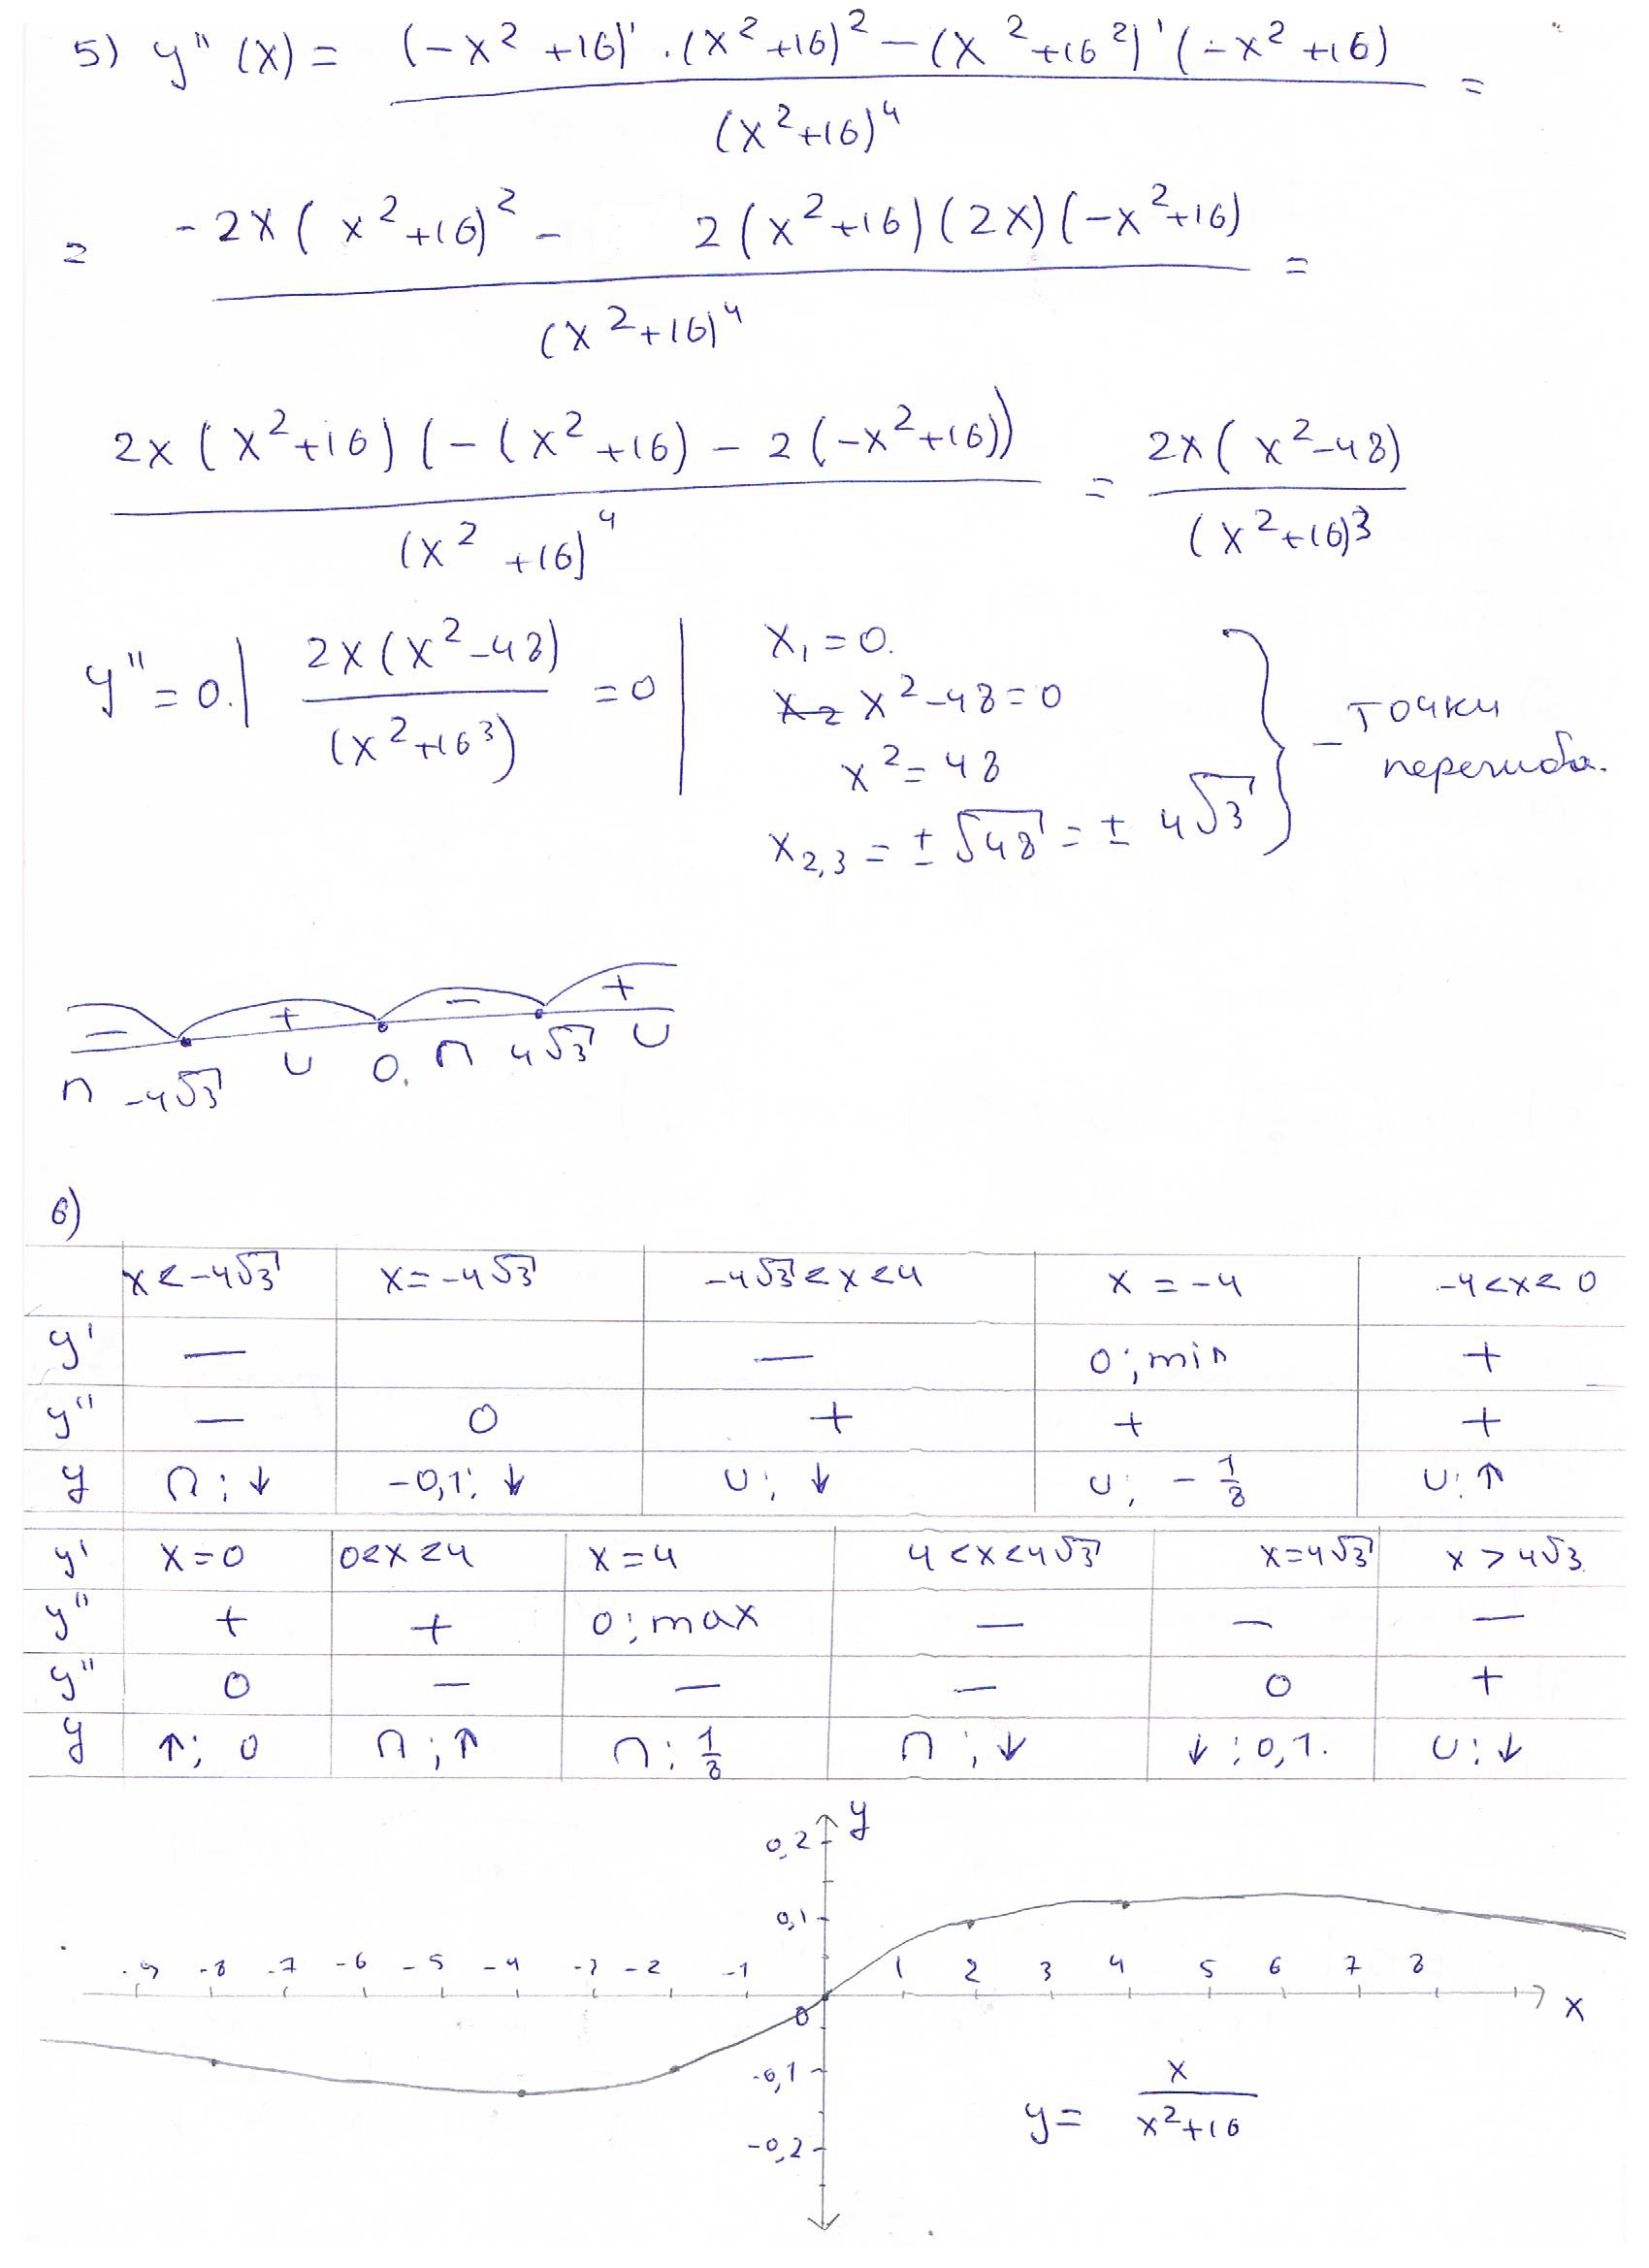 5) y'' (x) = ((-x² +16)' · (x²+16)² - (x²+16²)' (-x²+16)) / (x²+16)⁴ =
= (-2x (x²+16)² - 2(x²+16)(2x)(-x²+16)) / (x²+16)⁴ =
(2x (x²+16) (-(x²+16) - 2(-x²+16))) / (x²+16)⁴ = 2x (x²-48) / (x²+16)3
y''=0. | 2x(x²-48) / (x²+16³) = 0 | x₁=0.
x²-48=0
x²=48
x₂,₃ = ±√48 = ± 4√3
- точки
перегиба.
- + - +
∩ -4√3 ∪ 0. ∩ 4√3 ∪
6)
x<-4√3 x=-4√3 -4√3<x<4 x=-4 -4<x<0
y' — — 0; min +
y'' — 0 + + +
y ∩; ↓ -0,1; ↓ ∪; ↓ ∪; -1/8 ∪; ↑
y' x=0 0<x<4 x=4 4<x<4√3 x=4√3 x>4√3
y'' + + 0; max — — —
y'' 0 — — — 0 +
y ↑; 0 ∩; ↑ ∩; 1/8 ∩; ↓ ↓; 0,1. ∪; ↓
y
0,2
0,1
-9 -8 -7 -6 -5 -4 -3 -2 -1 1 2 3 4 5 6 7 8
0
x
-0,1
-0,2
y = x / (x²+16)